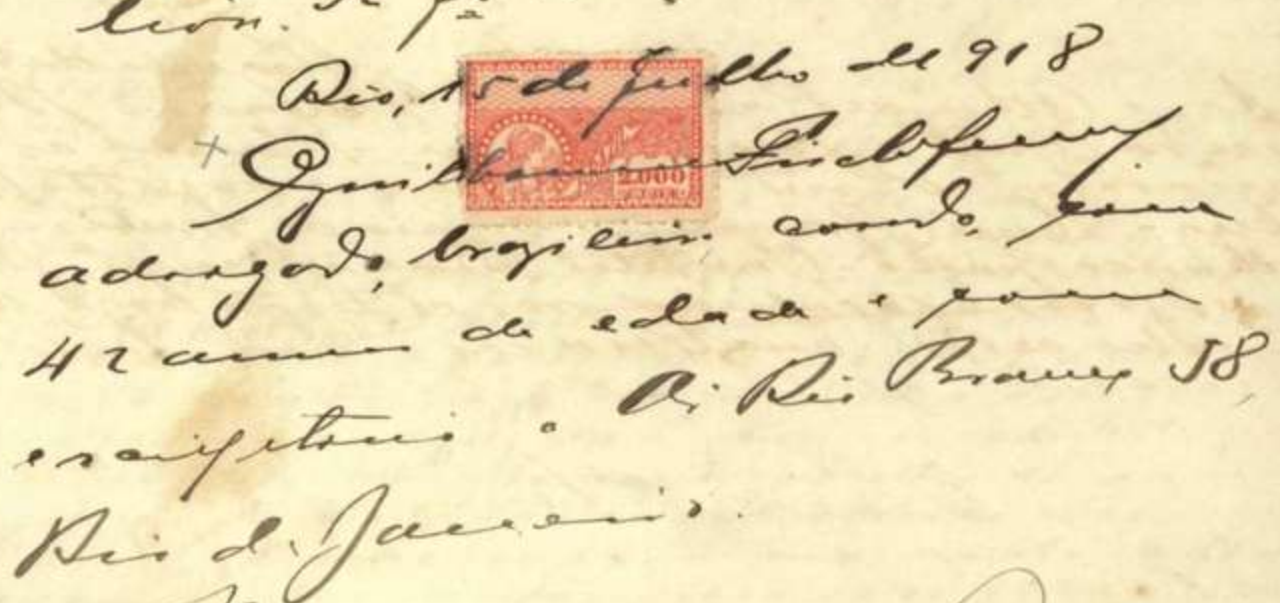 Rio, 15 de Julho de 918
Guilherme
2.000
advogado, brazileiro casado, com
42 annos de edade e com
escriptorio a Av. Rio Branco 58,
Rio de Janeiro.